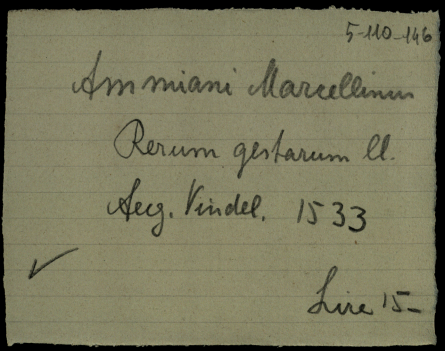 5-110-146
Ammiani Marcellinus
Rerum gestarum ll.
Aug. Vindel. 1533
Lire 15-